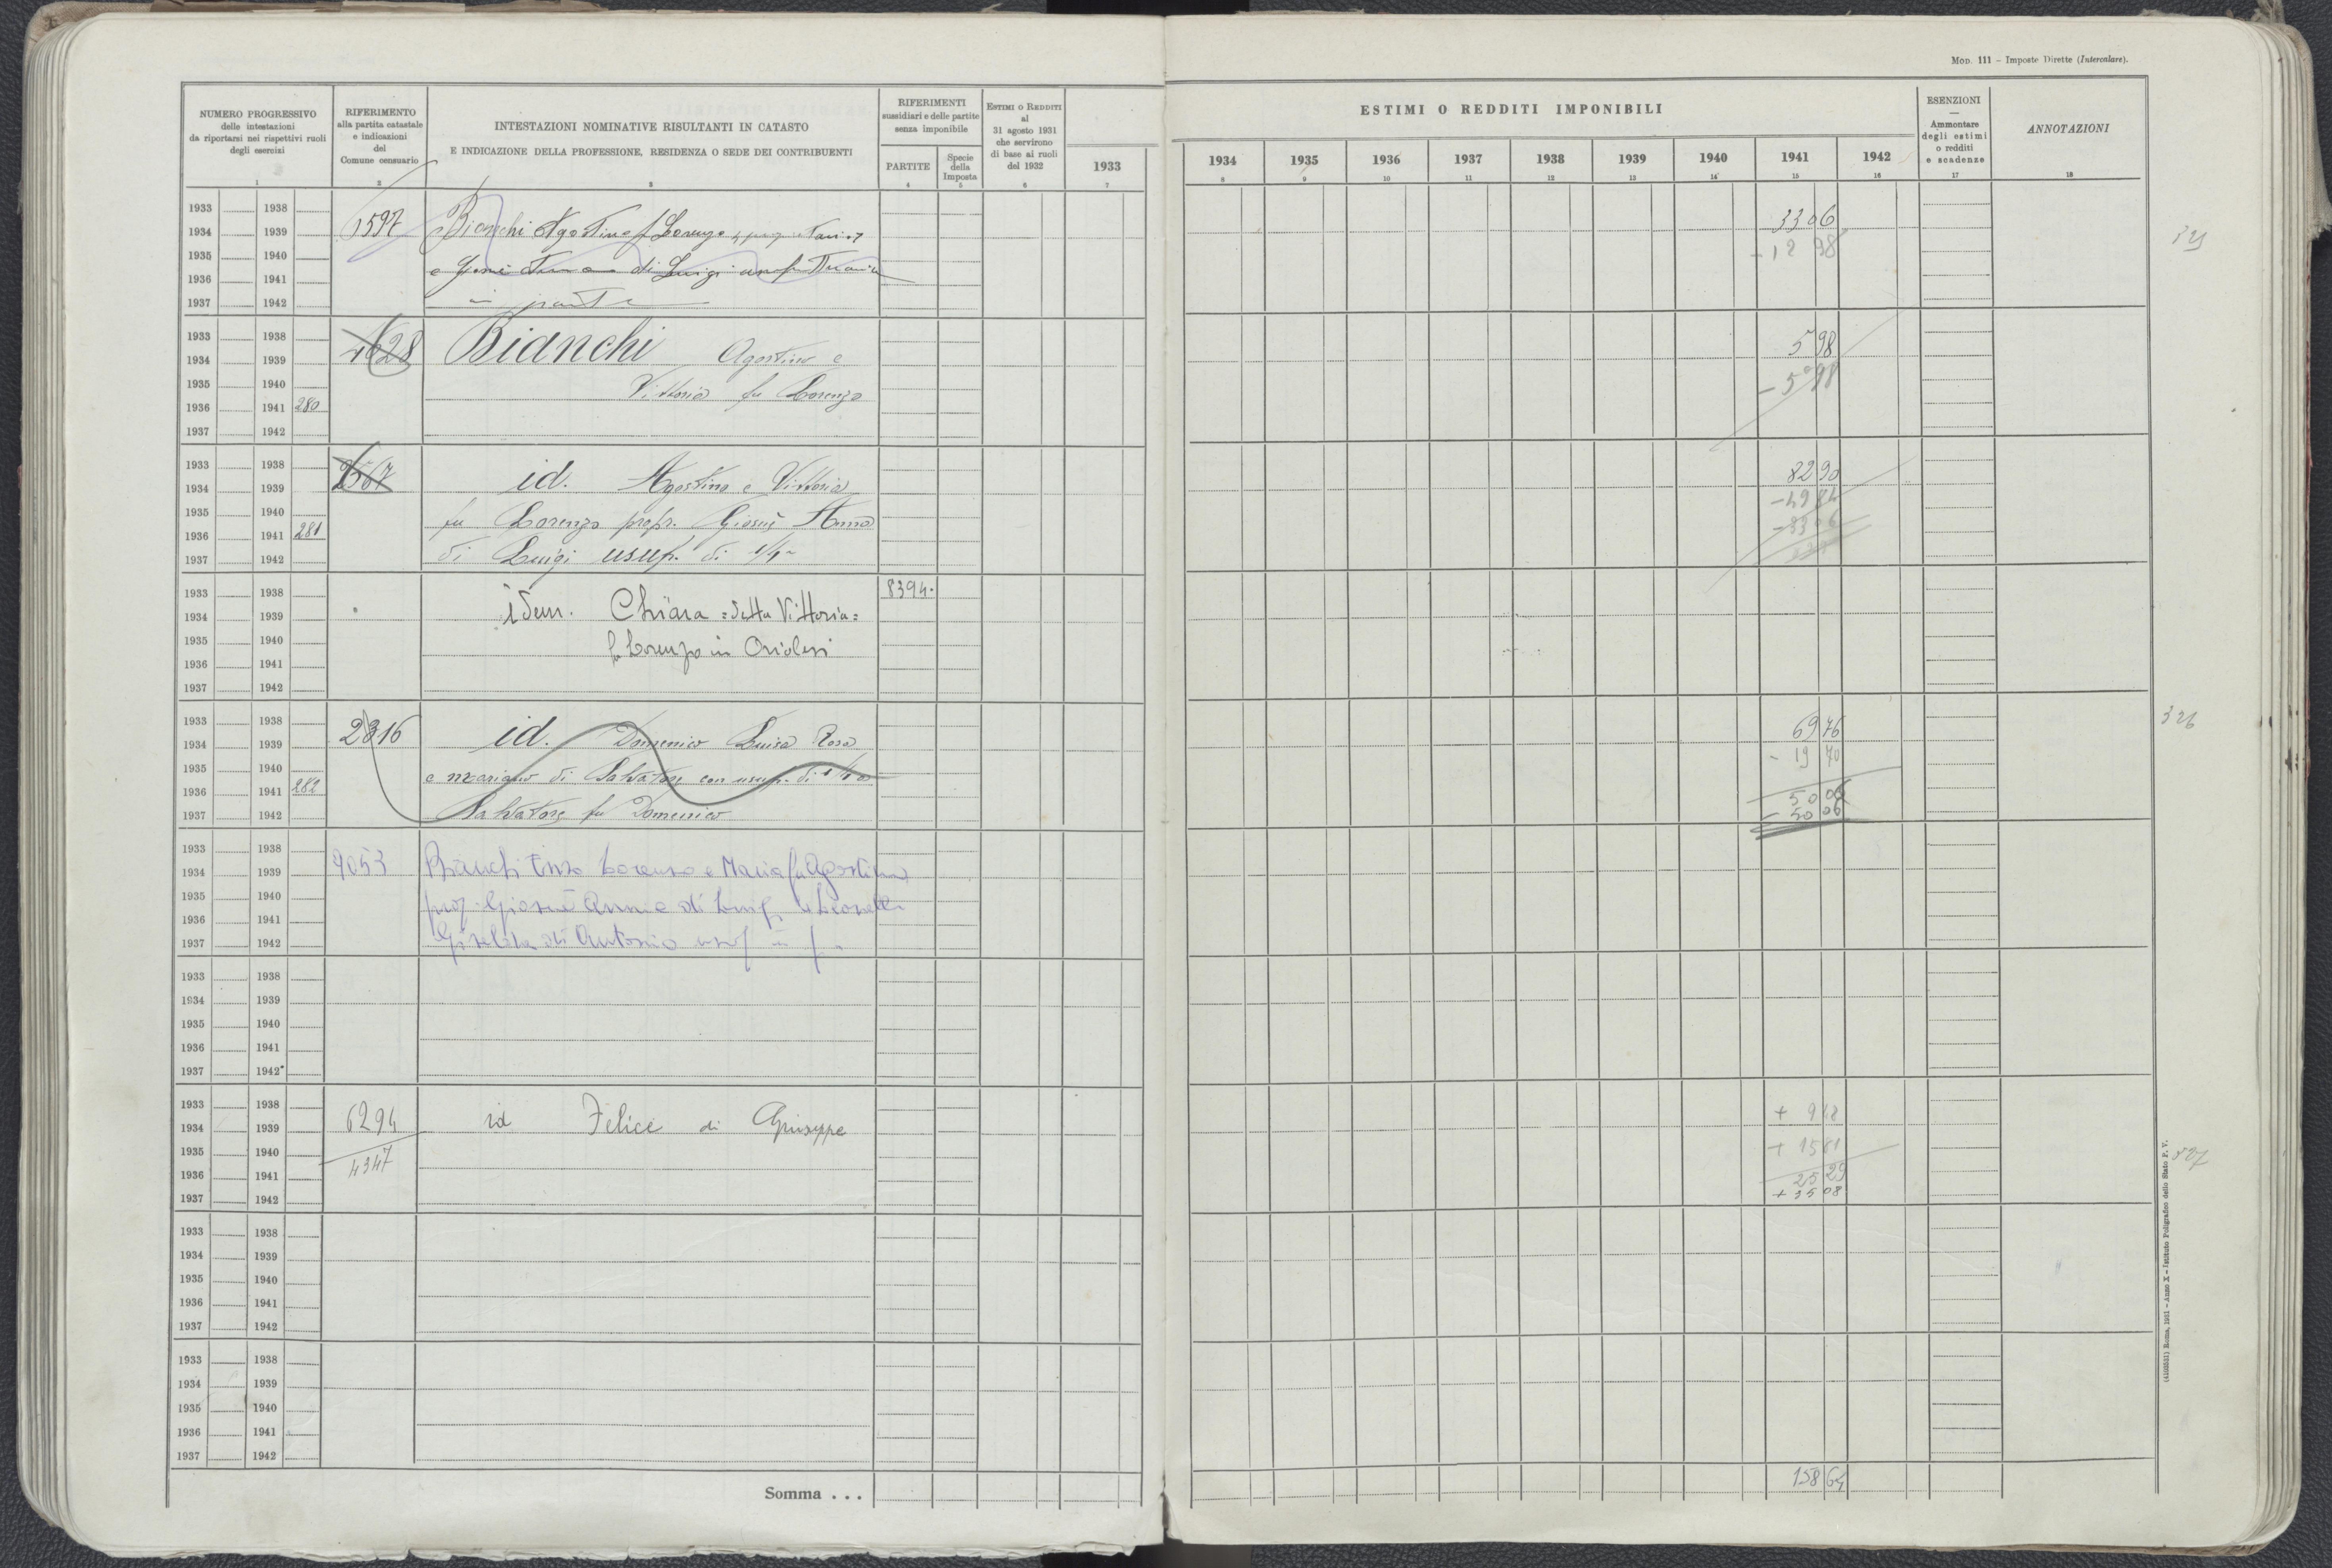 MOD. 111 – Imposte Dirette (Intercalare).
NUMERO PROGRESSIVO
delle intestazioni
da riportarsi nei rispettivi ruoli
degli esercizi
RIFERIMENTO
alla partita catastale
e indicazioni
del
Comune censuario
INTESTAZIONI NOMINATIVE RISULTANTI IN CATASTO
E INDICAZIONE DELLA PROFESSIONE, RESIDENZA O SEDE DEI CONTRIBUENTI
RIFERIMENTI
sussidiari e delle partite
senza imponibile
PARTITE
Specie
della
Imposta
ESTIMI O REDDITI
al
31 agosto 1931
che servirono
di base ai ruoli
del 1932
ESTIMI O REDDITI IMPONIBILI
1933 1934 1935 1936 1937 1938 1939 1940 1941 1942
ESENZIONI
—
Ammontare
degli estimi
o redditi
e scadenze
ANNOTAZIONI
1 2 3 4 5 6 7 8 9 10 11 12 13 14 15 16 17 18
1933 1938
1934 1939 1597 Bianchi Agostino f Lorenzo 3306
1935 1940 - 12 98
1936 1941 e di Luigi
1937 1942 in parte
1933 1938
1934 1939 4628 Bianchi Agostino e 5 98
1935 1940 Vittoria fu Lorenzo - 5 98
1936 1941 280
1937 1942
1933 1938
1934 1939 2567 id. Agostino e Vittoria 82 90
1935 1940 fu Lorenzo propr. Giosuè Anna - 49 84
1936 1941 281 - 33 06
1937 1942 di Luigi usuf. di 1/4
1933 1938 8394.
1934 1939 idem. Chiara = detta Vittoria =
1935 1940 f Lorenzo in Oriolesi
1936 1941
1937 1942
1933 1938
1934 1939 2316 id. Domenico Luisa Rosa 69 76
1935 1940 e mariano di Salvatore con usuf. di - 19 70
1936 1941 282 50 06
1937 1942 Salvatore fu Domenico - 50 06
326
1933 1938
1934 1939 9053 Bianchi Enzo Lorenzo e Maria fu Agostino
1935 1940
1936 1941 prop Giosuè Anna di Luigi e
1937 1942 di Antonio usuf in
1933 1938
1934 1939
1935 1940
1936 1941
1937 1942
1933 1938
1934 1939 6294 id Felice di Giuseppe + 9 48
1935 1940 4347 + 15 81
1936 1941 25 29
1937 1942 + 35 08
1933 1938
1934 1939
1935 1940
1936 1941
1937 1942
1933 1938
1934 1939
1935 1940
1936 1941
1937 1942
Somma . . . 158 64
(4103531) Roma, 1931 – Anno X – Istituto Poligrafico dello Stato P. V.